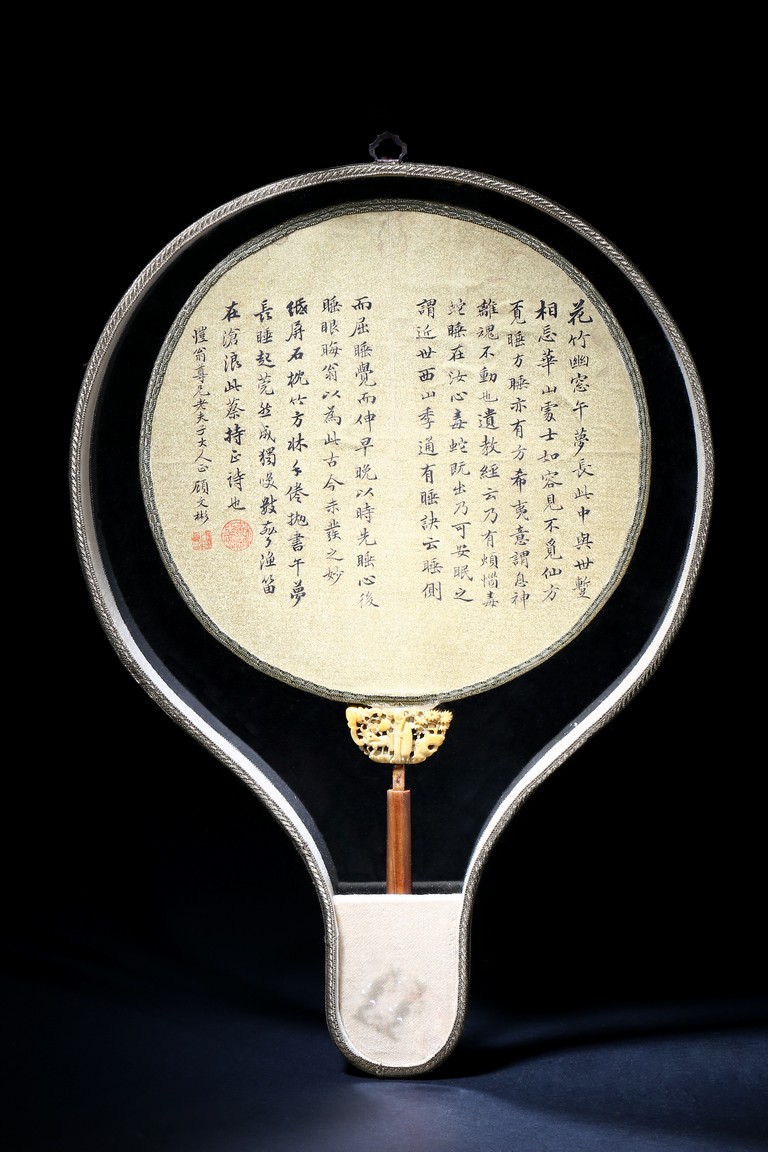 花竹幽窓午夢長此中與世暫
相忘華山處士如容見不覓仙方
覓睡方睡亦有方希夷意謂息神
離魂不動也遺教經云乃有煩惱毒
蛇睡在汝心毒蛇既出乃可安眠之
謂近世西山季通有睡訣云睡側
而屈睡覺而伸早晚以時先睡心後
睡眼晦翁以為此古今未發之妙
紙屏石枕竹方牀手倦拋書午夢
長睡起莞然成獨笑數聲漁笛
在滄浪此蔡持正詩也
愷翁尊兄老夫子大人正 顧文彬